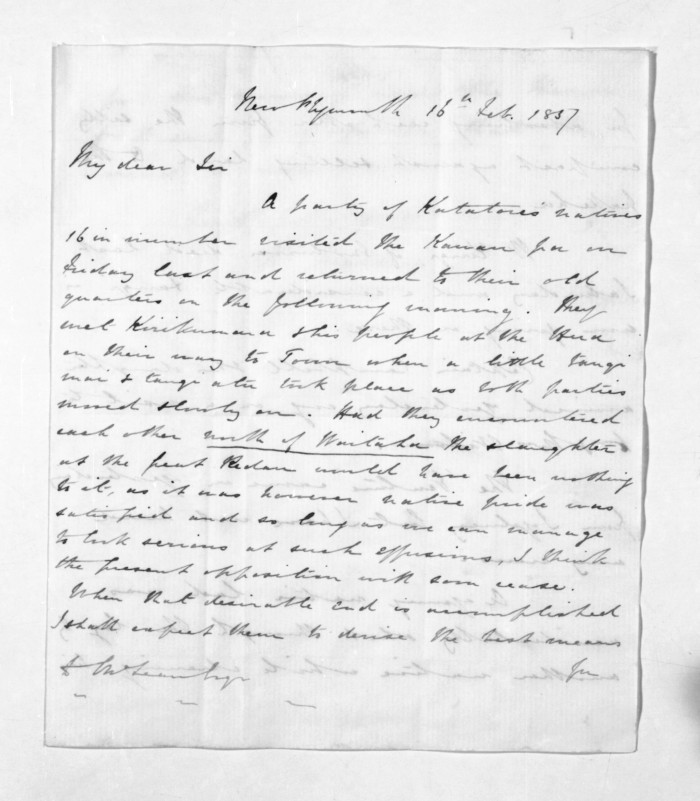 New Plymouth 16th Feb. 1857
My dear Sir
A party of Katatores natives
16 in number visited the Kawau pa on
Friday last and returned to their old
quarters on the following morning. They
met Kirikumara & his people at the Hua
on their way to Town when a little tangi
mai & tangi atu took place as both parties
moved slowly on. Had they encountered
each other north of Waitaha the slaughter
at the great Redan would have been nothing
to it, as it was however native pride was
satisfied and so long as we can manage
to look serious at such effusions, I think
the present opposition will soon cease.
When that desirable end is accomplished
I shall expect them to devise the best means
for
D McLean Esqr